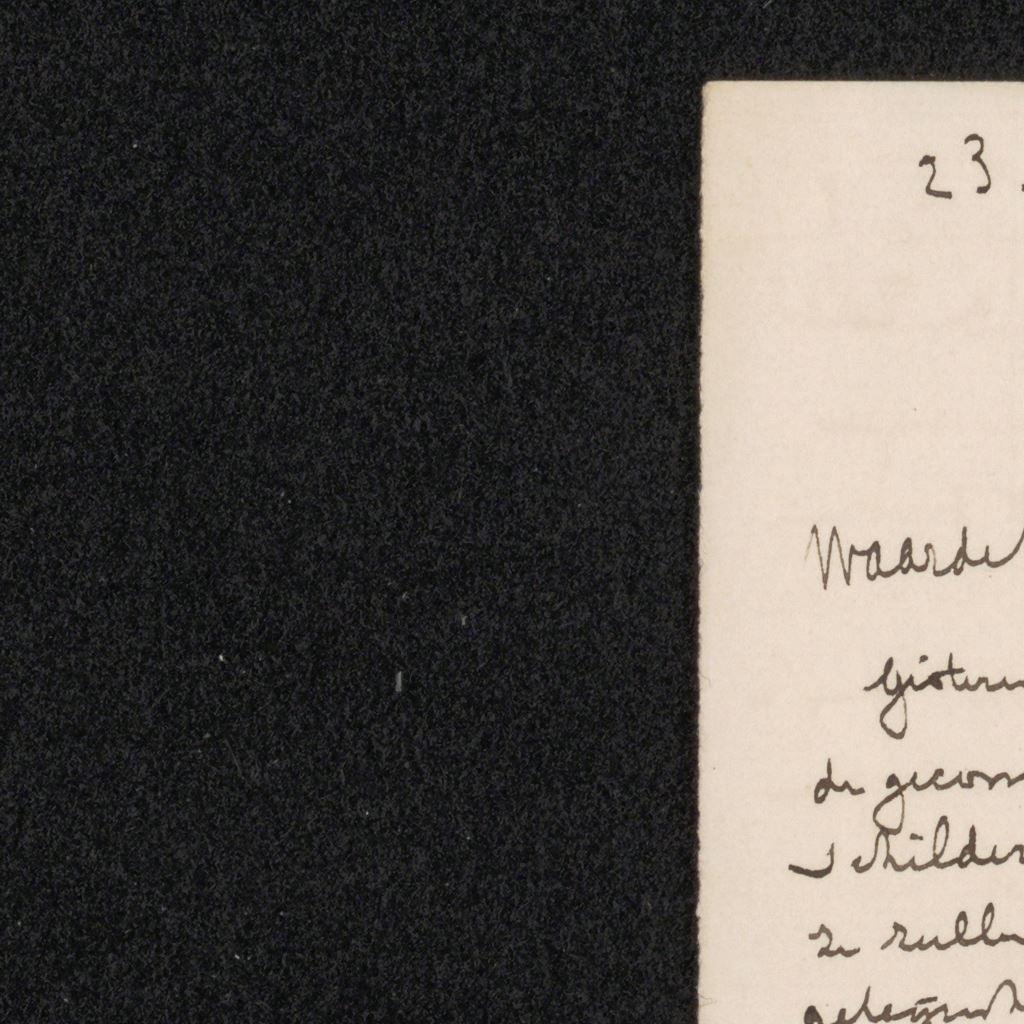 23.
Waarde
Gisteren
de gecom
Schilder
ze zulle